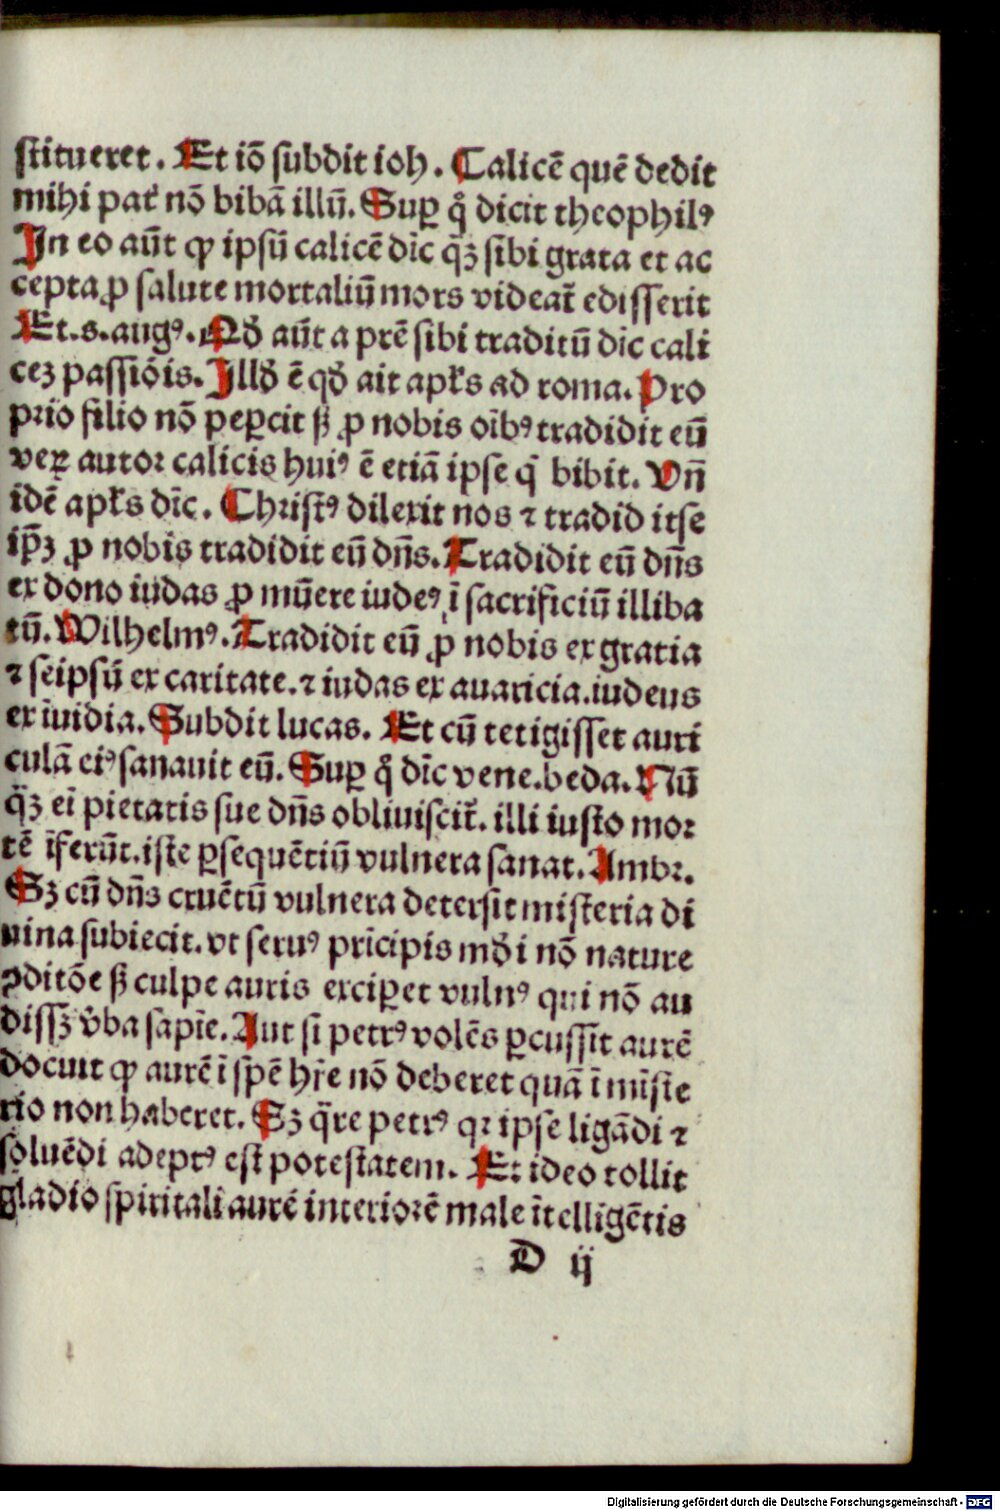 stitueret. Et iō subdit ioh. Calicē quē dedit
mihi pat᷑ nō bibā illū. Suꝑ qͦ dicit theophilꝰ
In eo aūt ꝙ ipsū calicē dic̄ qꝫ̄ sibi grata et ac
cepta ꝓ salute mortaliū mors videat᷑ edisserit
Et. s. augꝰ. Qđ aūt a prē sibi traditū dic̄ cali
ceꝫ passiōis. Illđ ē qđ ait apl̄s ad roma. Pro
prio filio nō peꝑcit ß ꝓ nobis oībꝰ tradidit eū
veꝝ autor calicis huiꝰ ē etiā ipse q̄ bibit. Vn̄
idē apl̄s dic̄. Christꝰ dilexit nos ⁊ tradid itse
ip̄ꝫ ꝓ nobis tradidit eū dn̄s. Tradidit eū dn̄s
ex dono iudas ꝓ mūere iudeꝰ ī sacrificiū illiba
tū. Wilhelmꝰ. Tradidit eū ꝓ nobis ex gratia
⁊ seipsū ex caritate. ⁊ iudas ex auaricia. iudeus
ex īuidia. Subdit lucas. Et cū tetigisset auri
culā eiꝰ sanauit eū. Suꝑ qͦ dic̄ vene. beda. Nū
qꝫ̄ ei pietatis sue dn̄s obliuiscit᷑. illi iusto mor
tē īferūt. iste ꝑsequētiū vulnera sanat. Ambr.
Sꝫ cū dn̄s cruētū vulnera detersit misteria di
uina subiecit. vt seruꝰ pricipis mđi nō nature
ꝯditōe ß culpe auris exciꝑet vulnꝰ qui nō au
dissꝫ v̾ba sapīe. Aut si petrꝰ volēs ꝑcussit aurē
docuit ꝙ aurē ī spē hr̄e nō deberet quā ī miste
rio non haberet. Sꝫ q̄re petrꝰ qꝛ ipse ligādi ⁊
soluēdi adeptꝰ est potestatem. Et ideo tollit
gladio spiritali aurē interiorē male ītelligētis
D ij
Digitalisierung gefördert durch die Deutsche Forschungsgemeinschaft - DFG